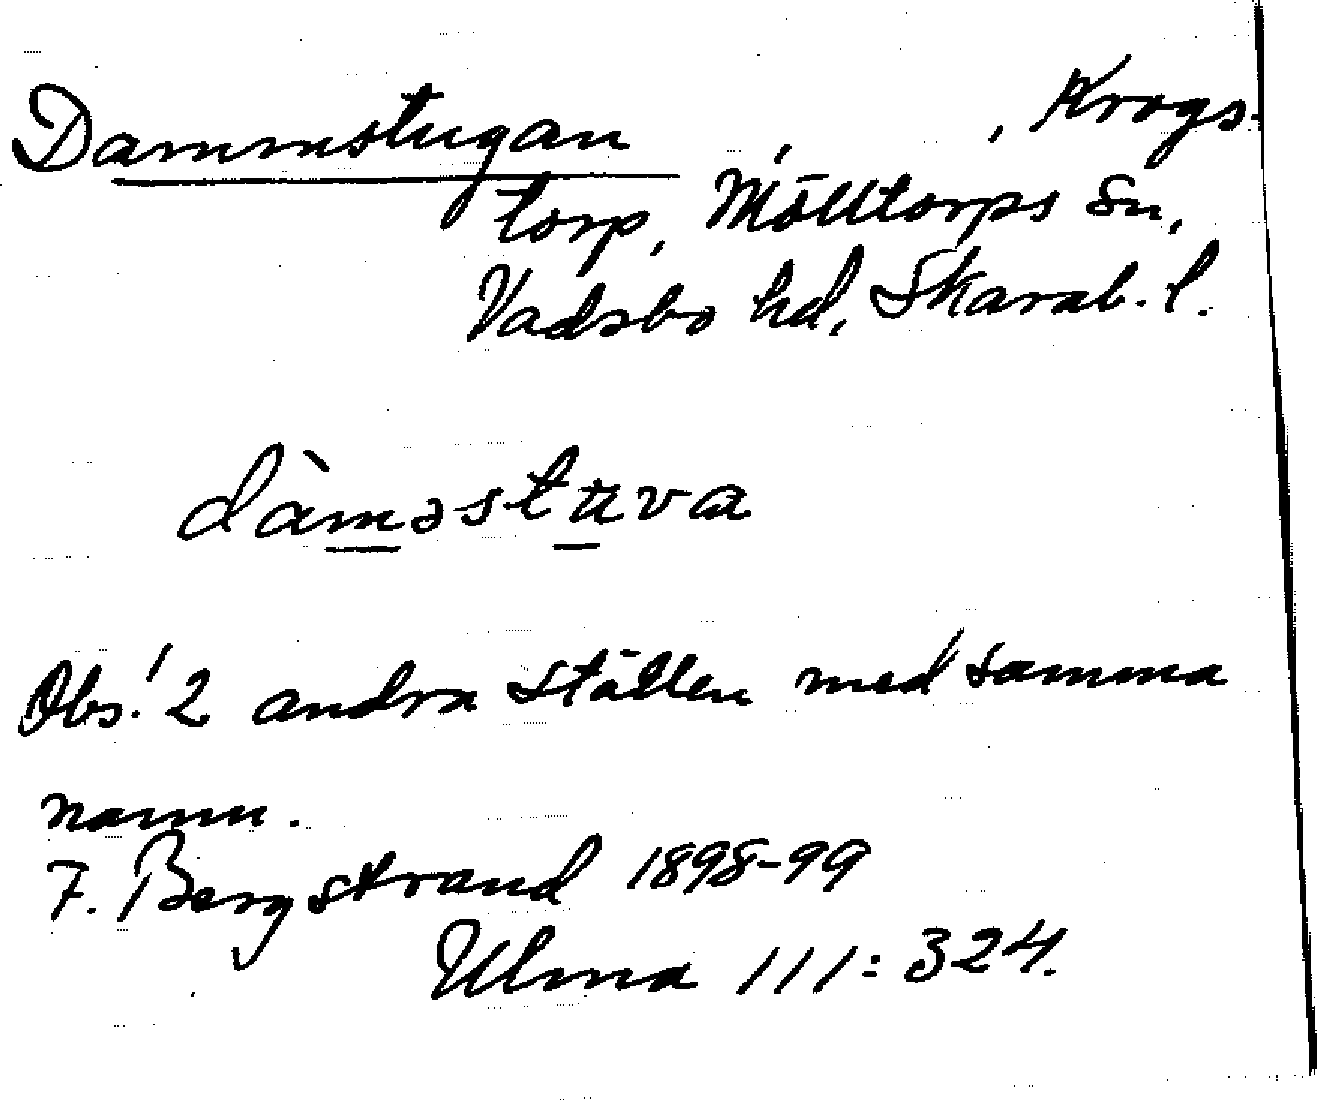 Dammstugan , , Krogs-
torp, Mölltorps Sn,
Vadsbo hd, Skarab. l.
dàməstu̇va
Obs! 2 andra ställen med samma
namn.
F. Bergstrand 1898-99
Ulma 111:324.